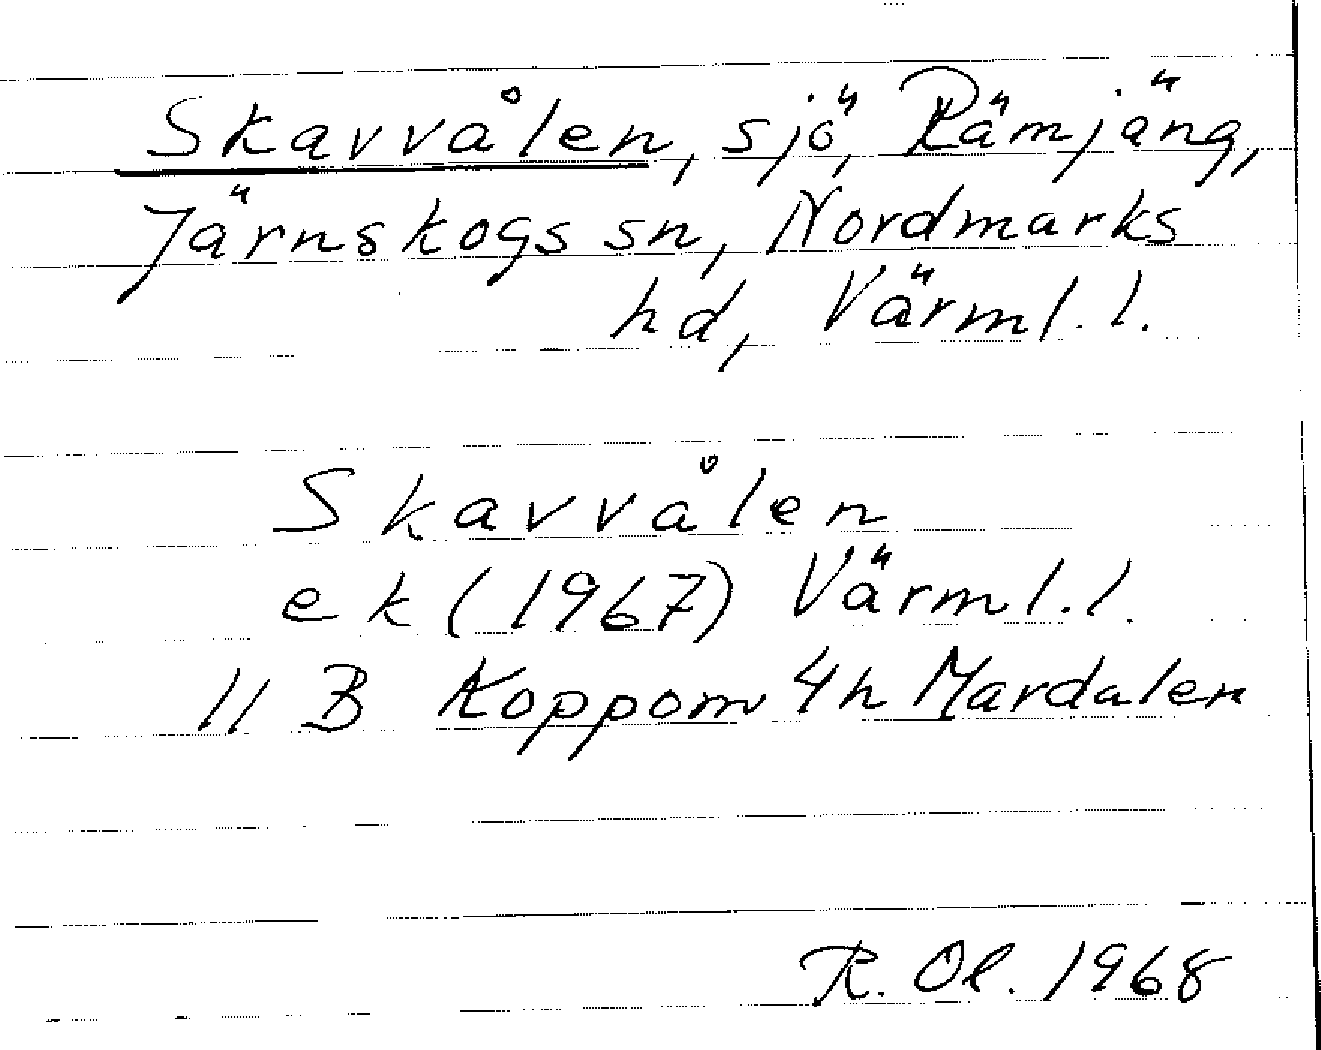 Skavvålen, sjö, Rämjäng,
Järnskogs sn, Nordmarks
hd, Värml. l.
Skavvålen
ek (1967) Värml. l.
11 B Koppom 4h Mardalen
R. Ol. 1968